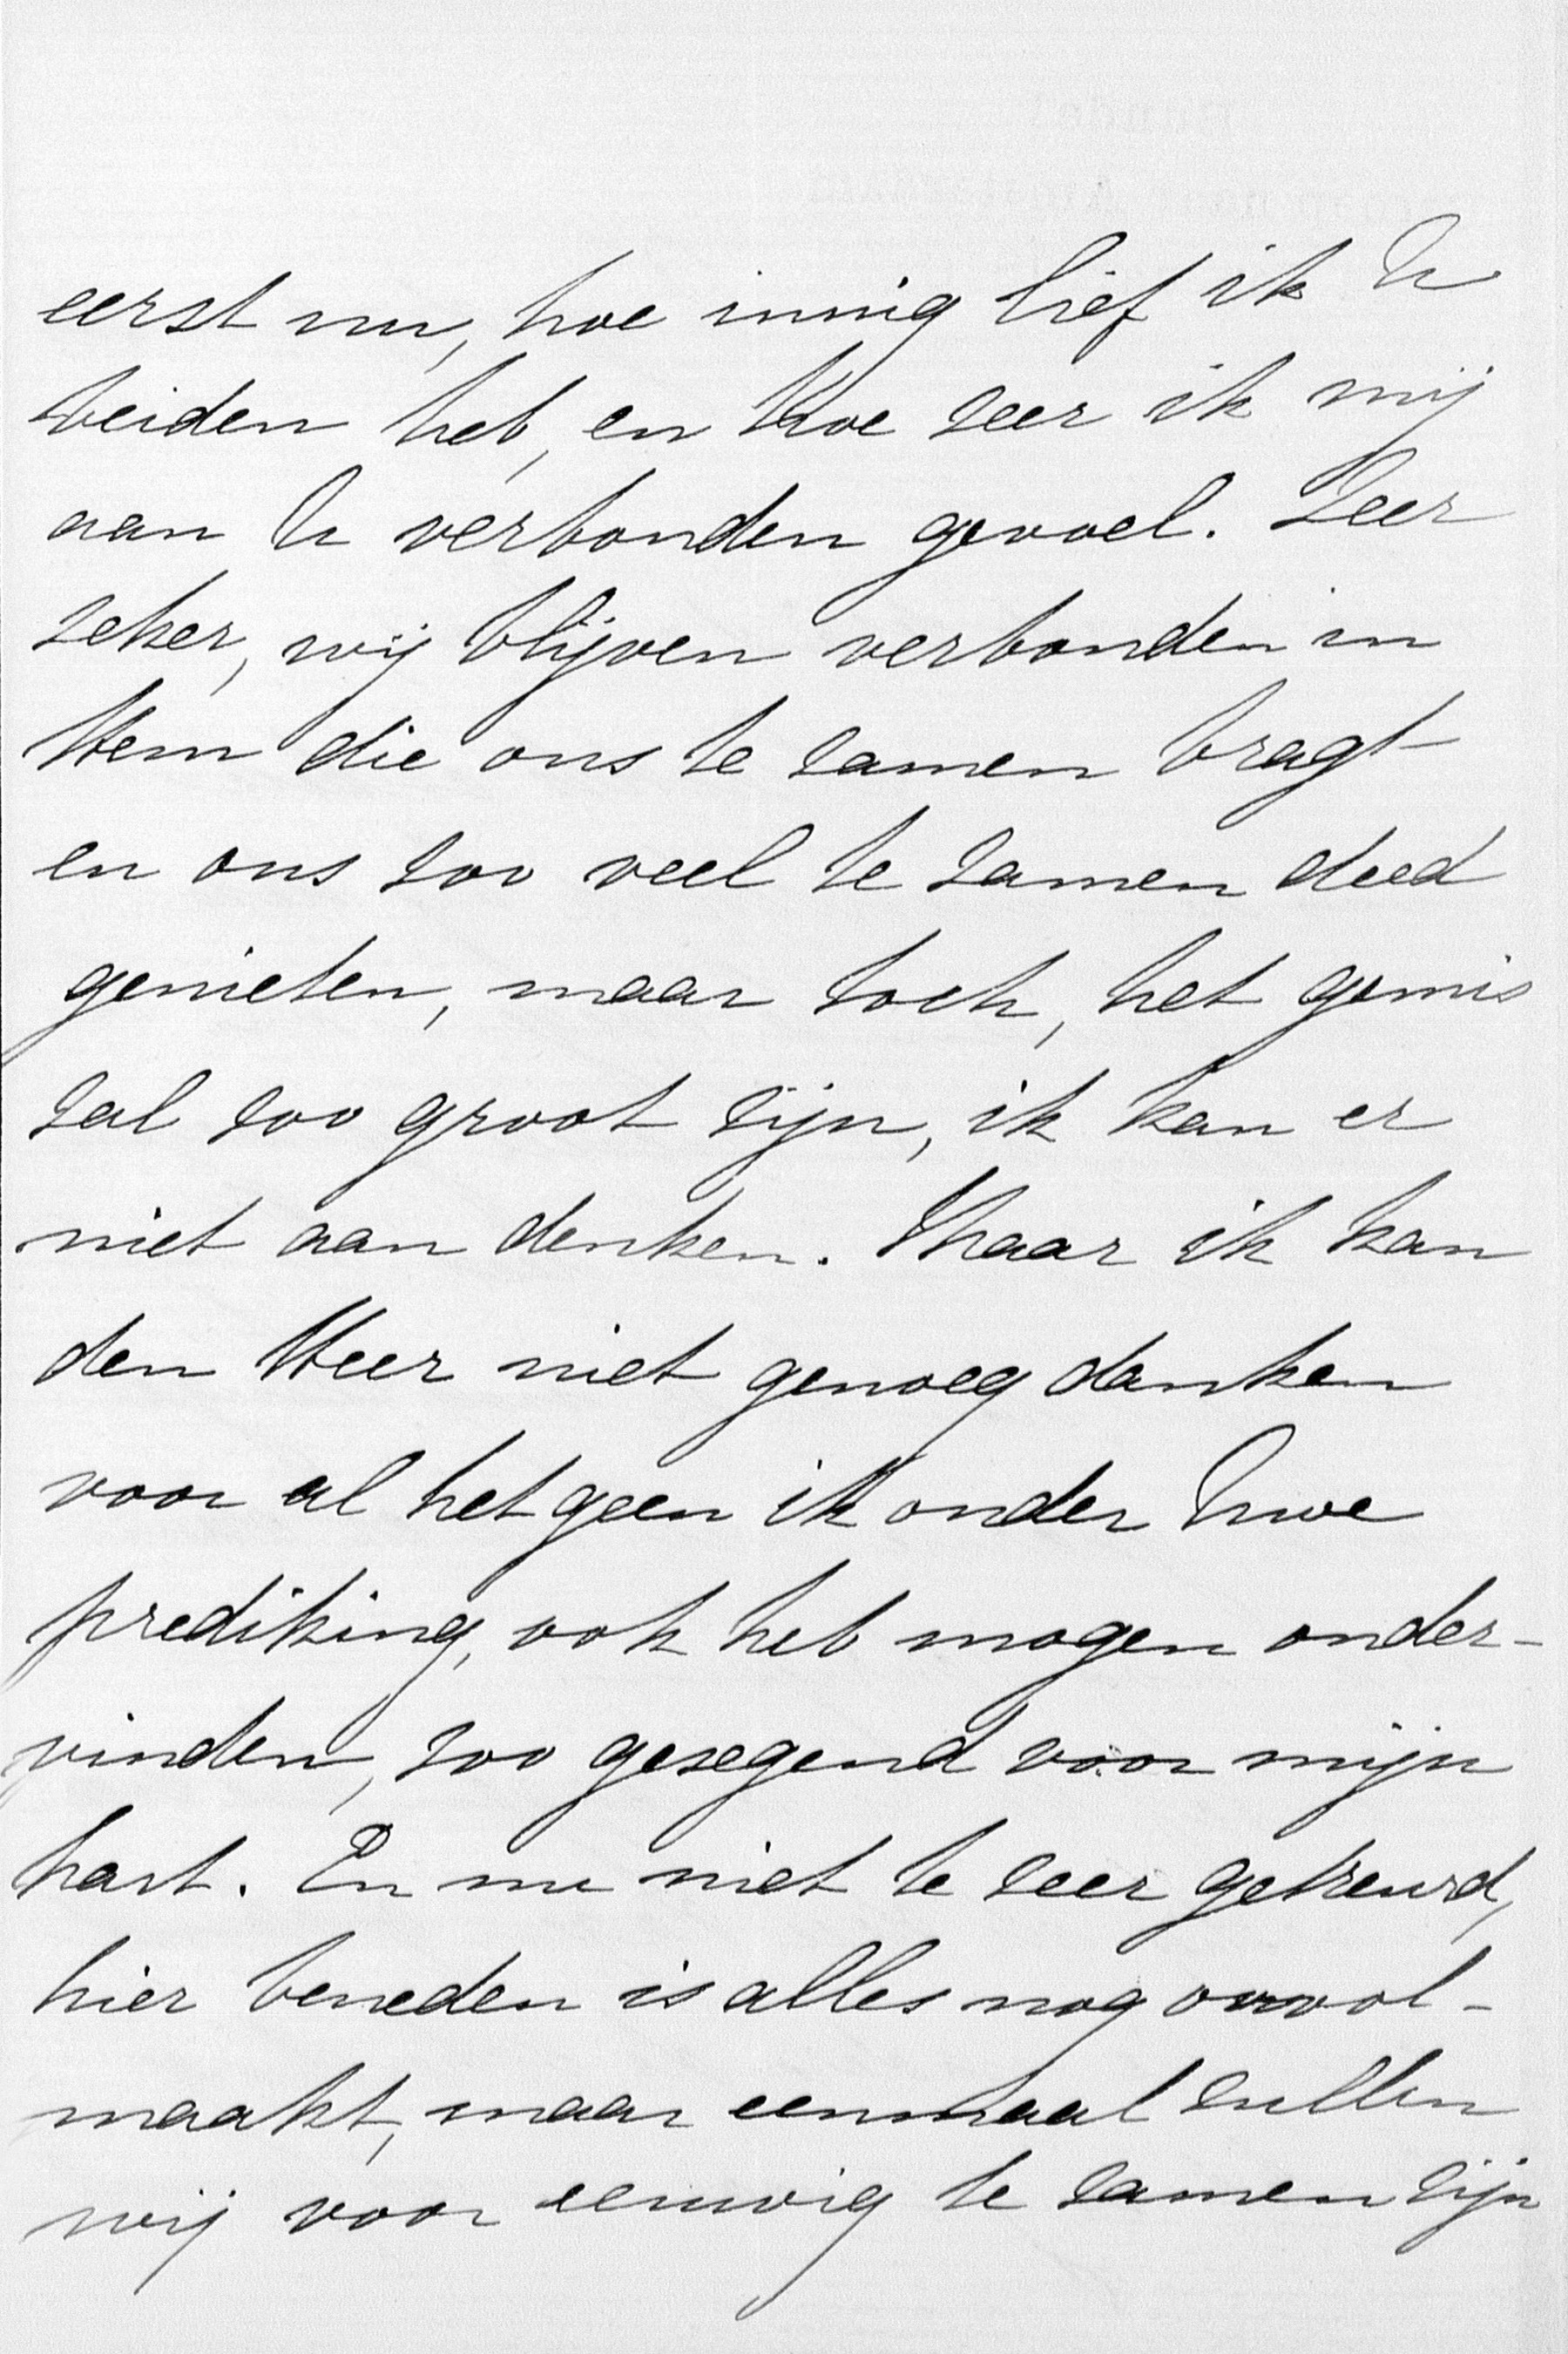 eerst nu, hoe innig lief ik U
beiden heb, en hoe zeer ik mij
aan U verbonden gevoel. Zeer
zeker, wij blijven verbonden in
Hem die ons te zamen bragt
en ons zoo veel te zamen deed
genieten, maar toch, het gemis
zal zoo groot zijn, ik kan er
niet aan denken. Maar ik kan
den Heer niet genoeg danken
voor al hetgeen ik onder Uwe
prediking, ook heb mogen onder-
vinden, zoo gezegend voor mijn
hart. En nu niet te zeer getreurd,
hier beneden is alles nog onvol-
maakt, maar eenmaal zullen
wij voor eeuwig te zamen zijn